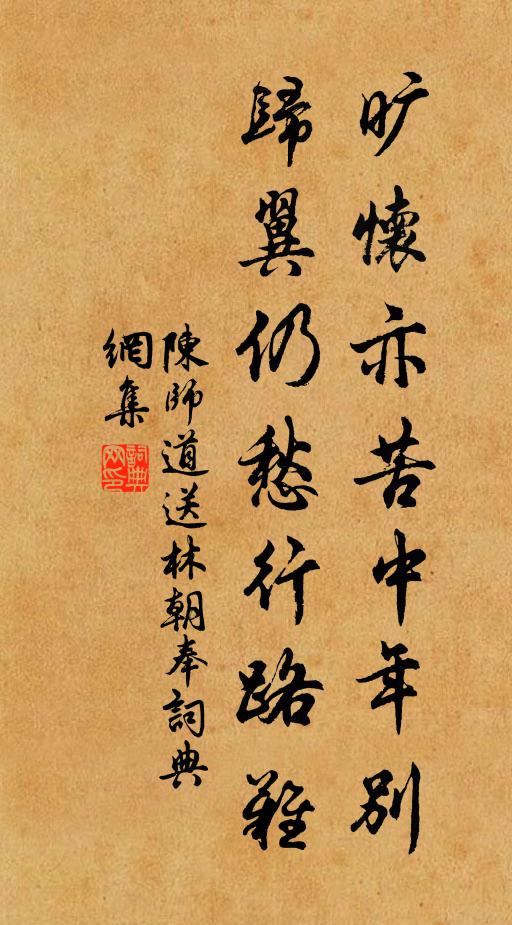 旷懷亦苦中年别
歸翼仍愁行路難
陳師道送林朝奉詞典
網集
詞典網印